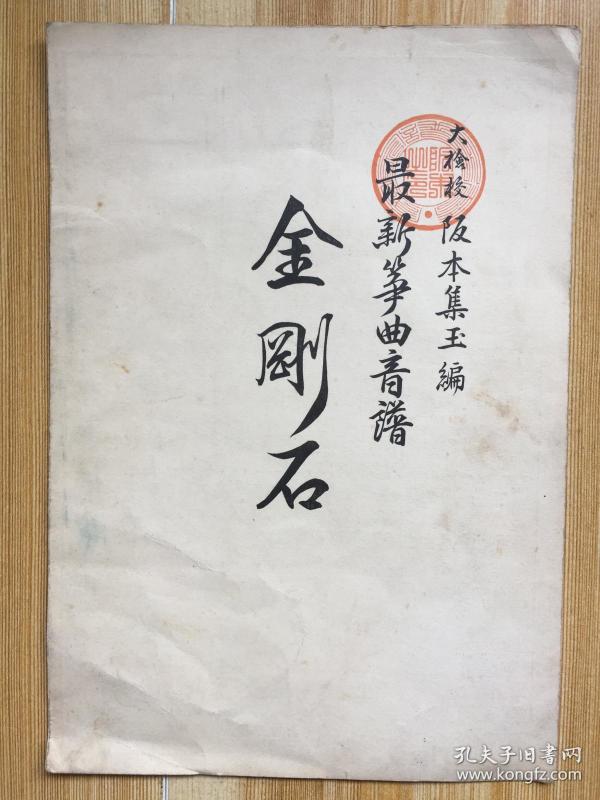 大檢校 阪本集玉編
最新箏曲音譜
金剛石
孔夫子旧書网
www.kongfz.com